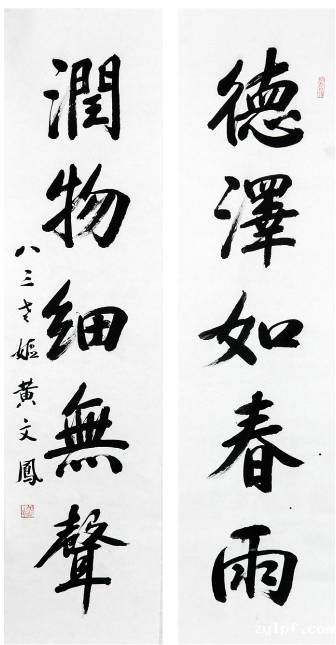 德澤如春雨
潤物細無聲
八三老嫗黄文鳳
zylpf.com